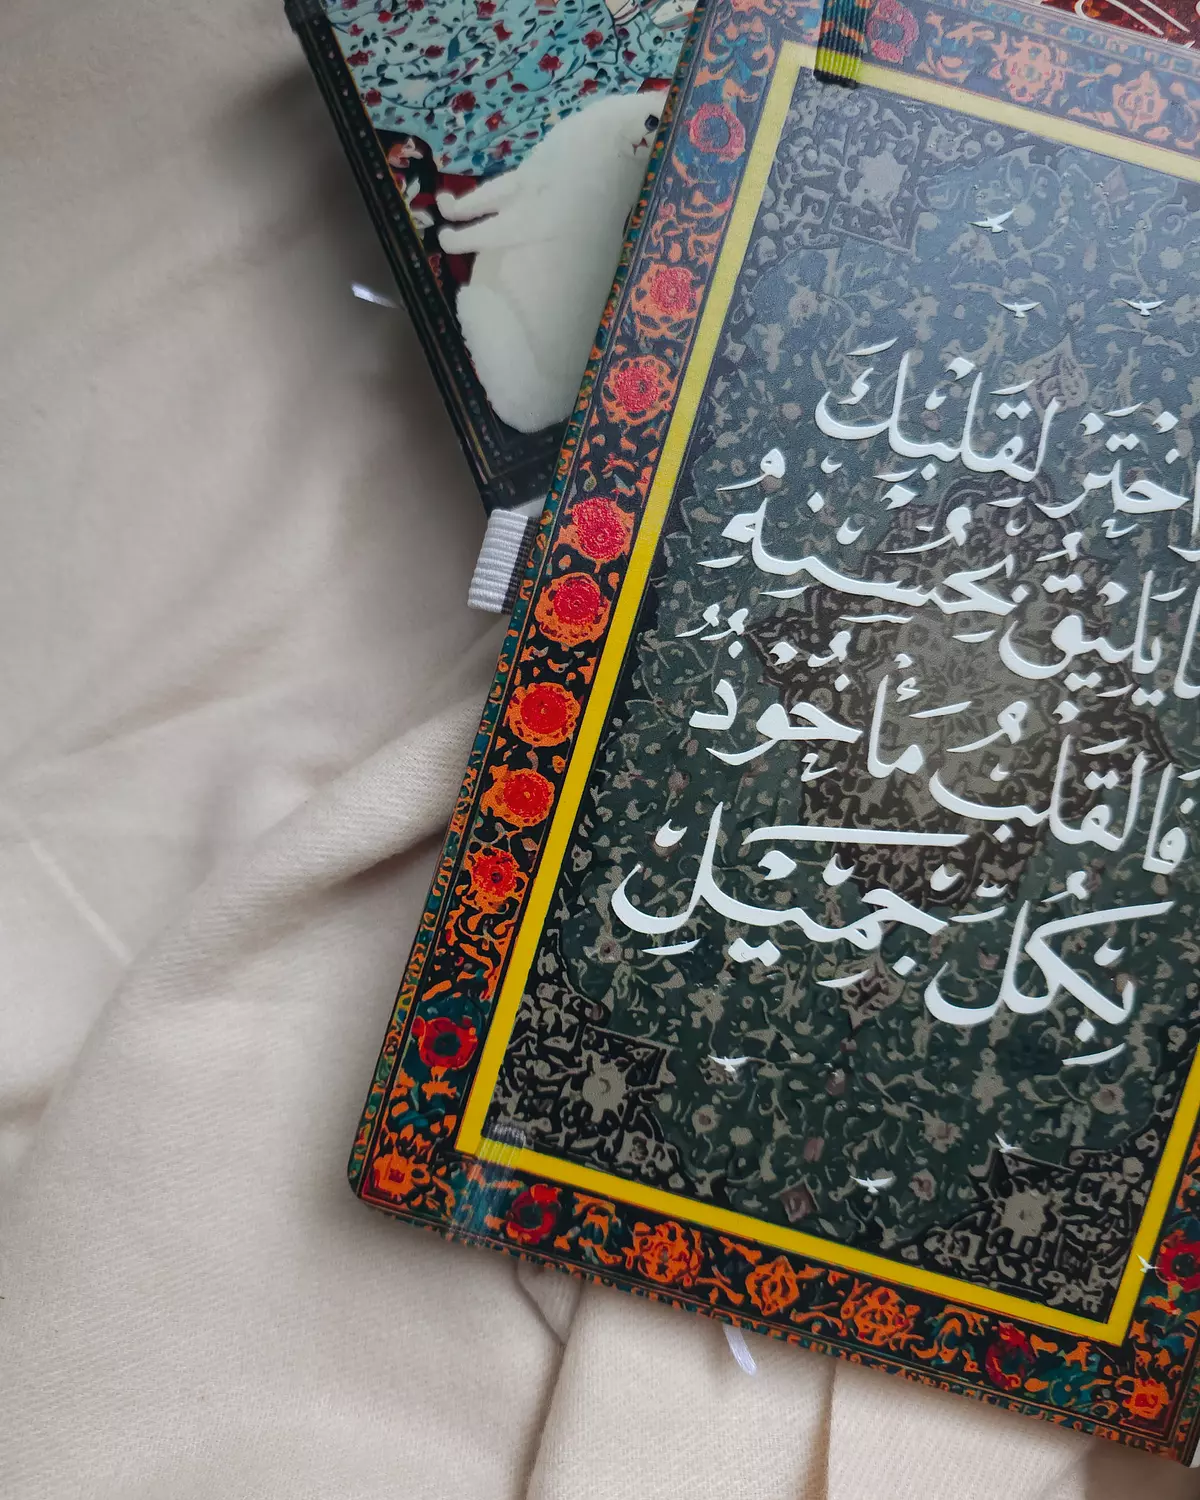 اختَر لِقَلبِكَ
ما يَليقُ بِحُسنِهُ
فالقَلبُ مَأخُوذٌ
بِكُلِّ جَميلِ